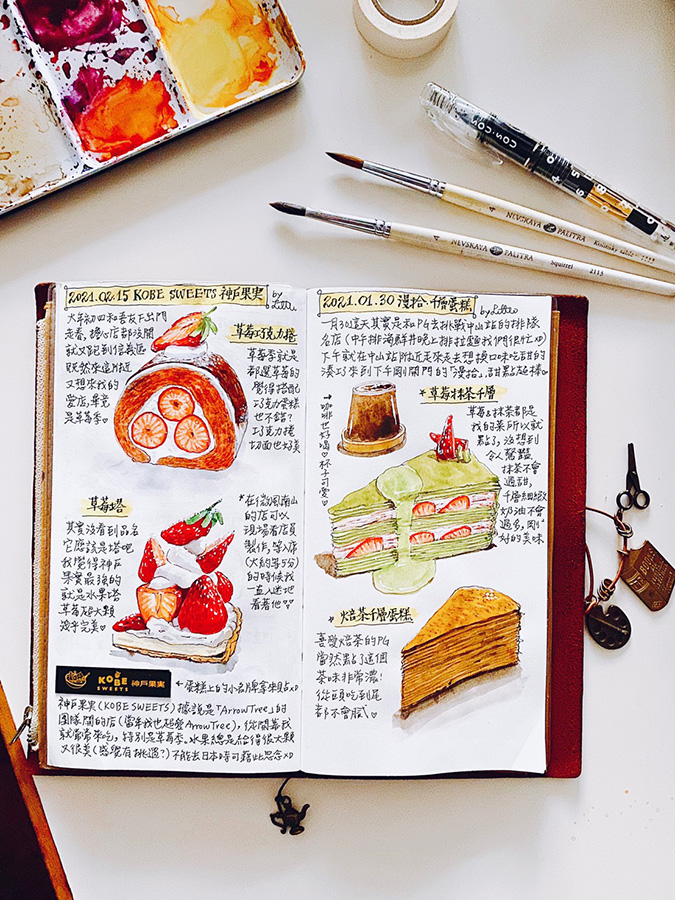 COS·COS
4 NEVSKAYA PALITRA Kolinsky sable
4 NEVSKAYA PALITRA Squirrel 2115
2021.02.15 KOBE SWEETS 神戶果實 by
大年初四和善友下出門
走春,擔心店都沒開
就又跑到信義區
既然來這附近
又想來我的
愛店,畢竟
是草莓季♡
草莓巧克力捲
草莓季就是
都選草莓的
覺得搭配
巧克力蛋糕
也不錯?
巧克力捲
切面也好美
草莓塔
其實沒看到品名
它應該是塔吧
我覺得神戶
果實最強的
就是水果塔
草莓超大顆
幾乎完美♡
*在微風南山
的店可以
現場看店員
製作,等入席
(大約等5分)
的時候我
一直入迷地
看著他♡
KOBE SWEETS 神戶果實
←蛋糕上的小名牌拿來貼xD
神戶果實(KOBE SWEETS)據說是「ArrowTree」的
團隊開的店(當年我也超愛ArrowTree),從開幕我
就常常來吃,特別是草莓季。水果總是給得很大顆
又很美(感覺有挑過?)不能去日本時可藉此思念xD
2021.01.30 漫拾.千層蛋糕 by
一月30這天其實是和PG去挑戰中山站的排隊
名店(中午排海鮮丼晚上排拉麵我們很忙xD)
下午就在中山站附近走來走去想換口味吃甜的
湊巧來到下午剛開門的「漫拾」,甜點超棒♡
→咖啡也好喝♡杯子可愛♡
*草莓抹茶千層
草莓&抹茶都是
我的菜所以就
點了,沒想到
令人驚豔
抹茶不會
過甜,
千層細緻
奶油不會
過多,剛
好的美味
*焙茶千層蛋糕
喜愛焙茶的PG
當然點了這個
茶味非常濃!
從頭吃到尾
都不會膩♡